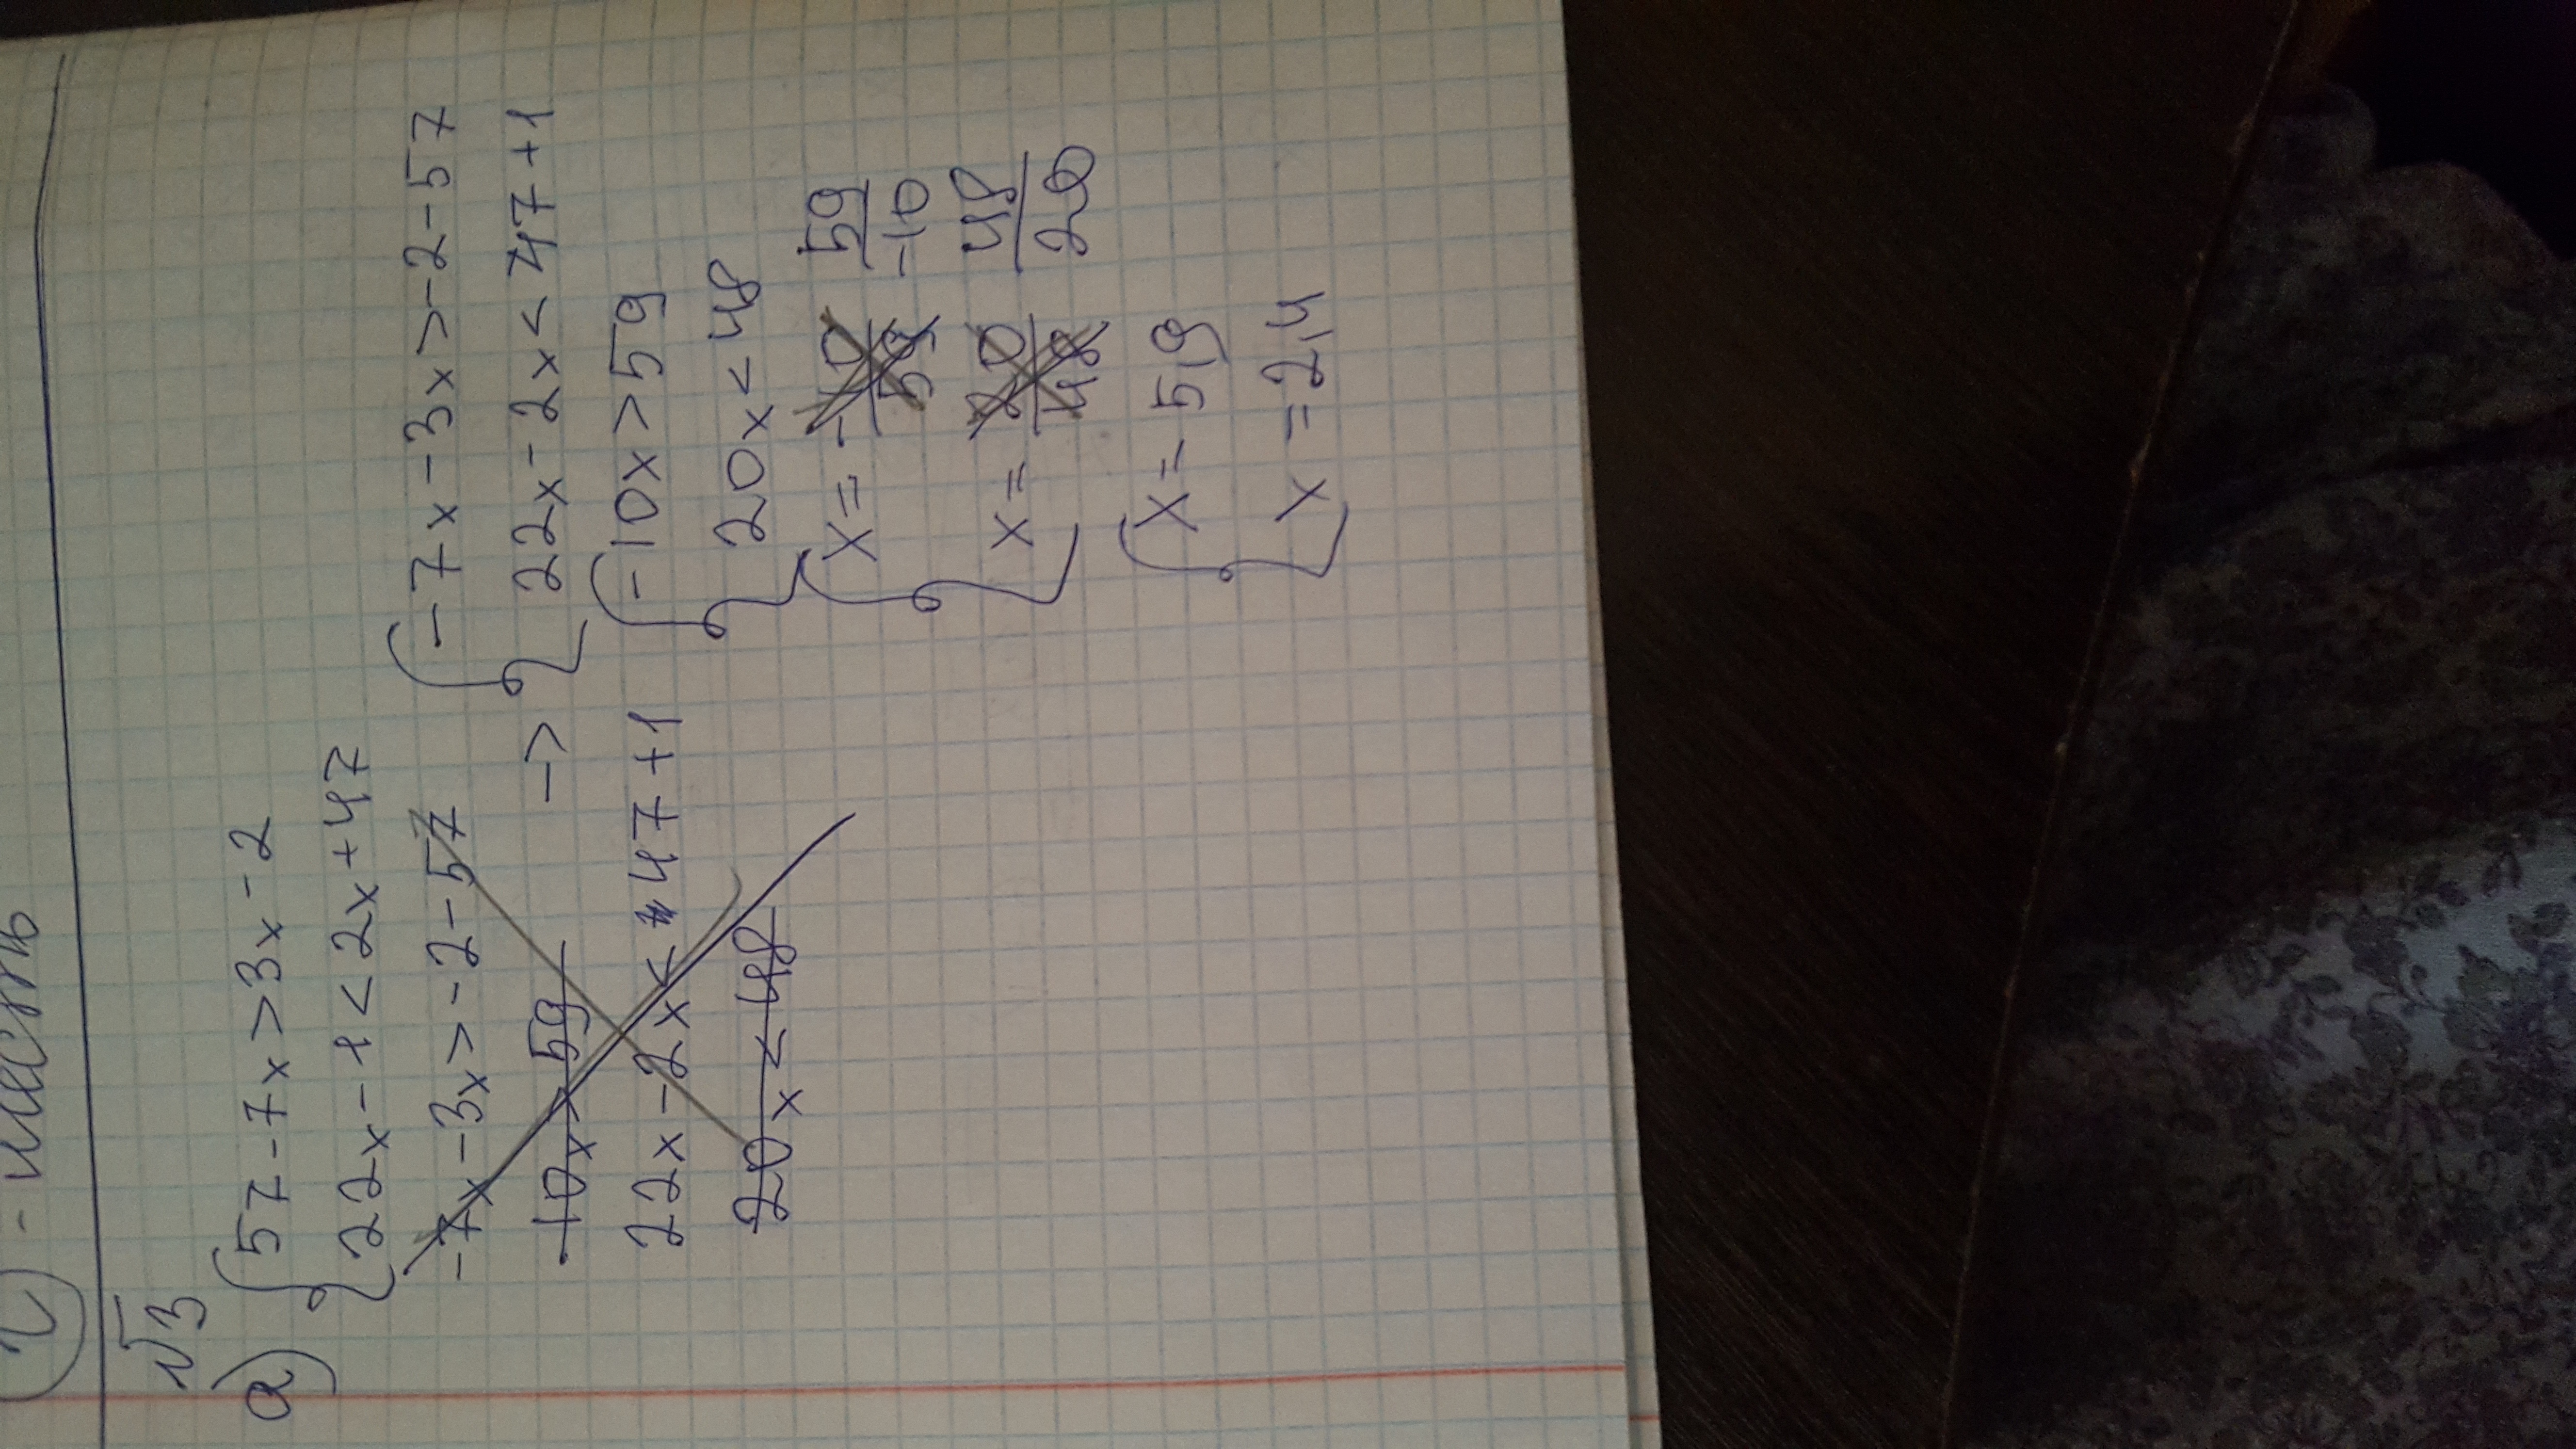 г) - шесть
№3
а) { 57-7x>3x-2
22x-1<2x+47
-7x-3x>-2-57
10x>59
22x-2x<47+1
20x<48
-> { -7x-3x>-2-57
22x-2x<47+1
{ -10x>59
20x<48
{ x=-10/59 59/-10
x=20/48 48/20
{ x=5,9
x=2,4